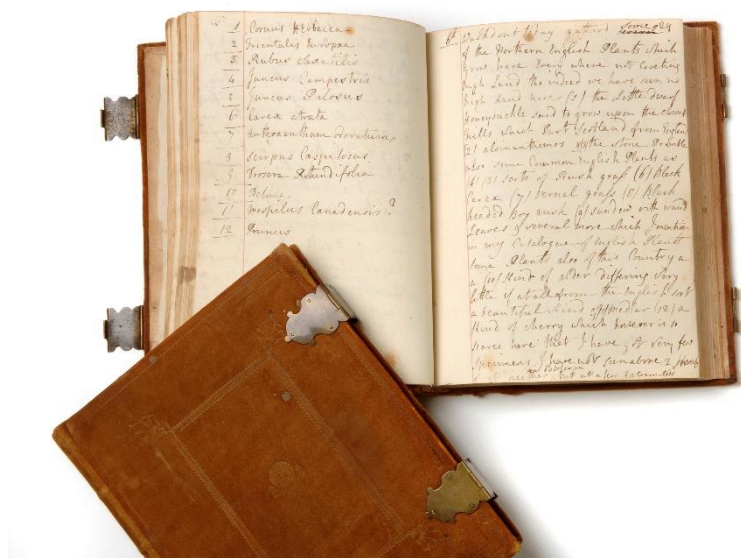 1 Cornus Herbacea
2 Trientalis Europaa
3 Rubus Saxatilis
4 Juncus Campestris
5 Juncus Pilosus
6 Carex atrata
7 Anthoxanthum odoratum
8 Scirpus Cæspitosus
9 Drosera Rotundifolia
10 Betula
11 Mespilus Canadensis?
12 Prunus
6th Walkd out to day gatherd some
of the Northern English Plants which
grow here Every where not coveting
high Land tho indeed we have seen no
high Land here (1) the Little dwarf
honeysuckle said to grow upon the cheviot
hills which Part Scotland from England
(2) alsmanthemos (3) the stone Bramble
also some Common English Plants as
(4) (5) sorts of Rush grass (6) Black
Carex (7) vernal grass (8) Black
headed Bog rush (9) sundew with round
Leaves & several more which I mention
in my Catalogue of English Plants
some Plants also of this Country a
a (10) Kind of alder differing Very
little if at all from the English sort
a beautiful Kind of Medlar (12) a
Kind of Cherry which however is so
scarce here that I have got very few
specimens I have not seen above 2